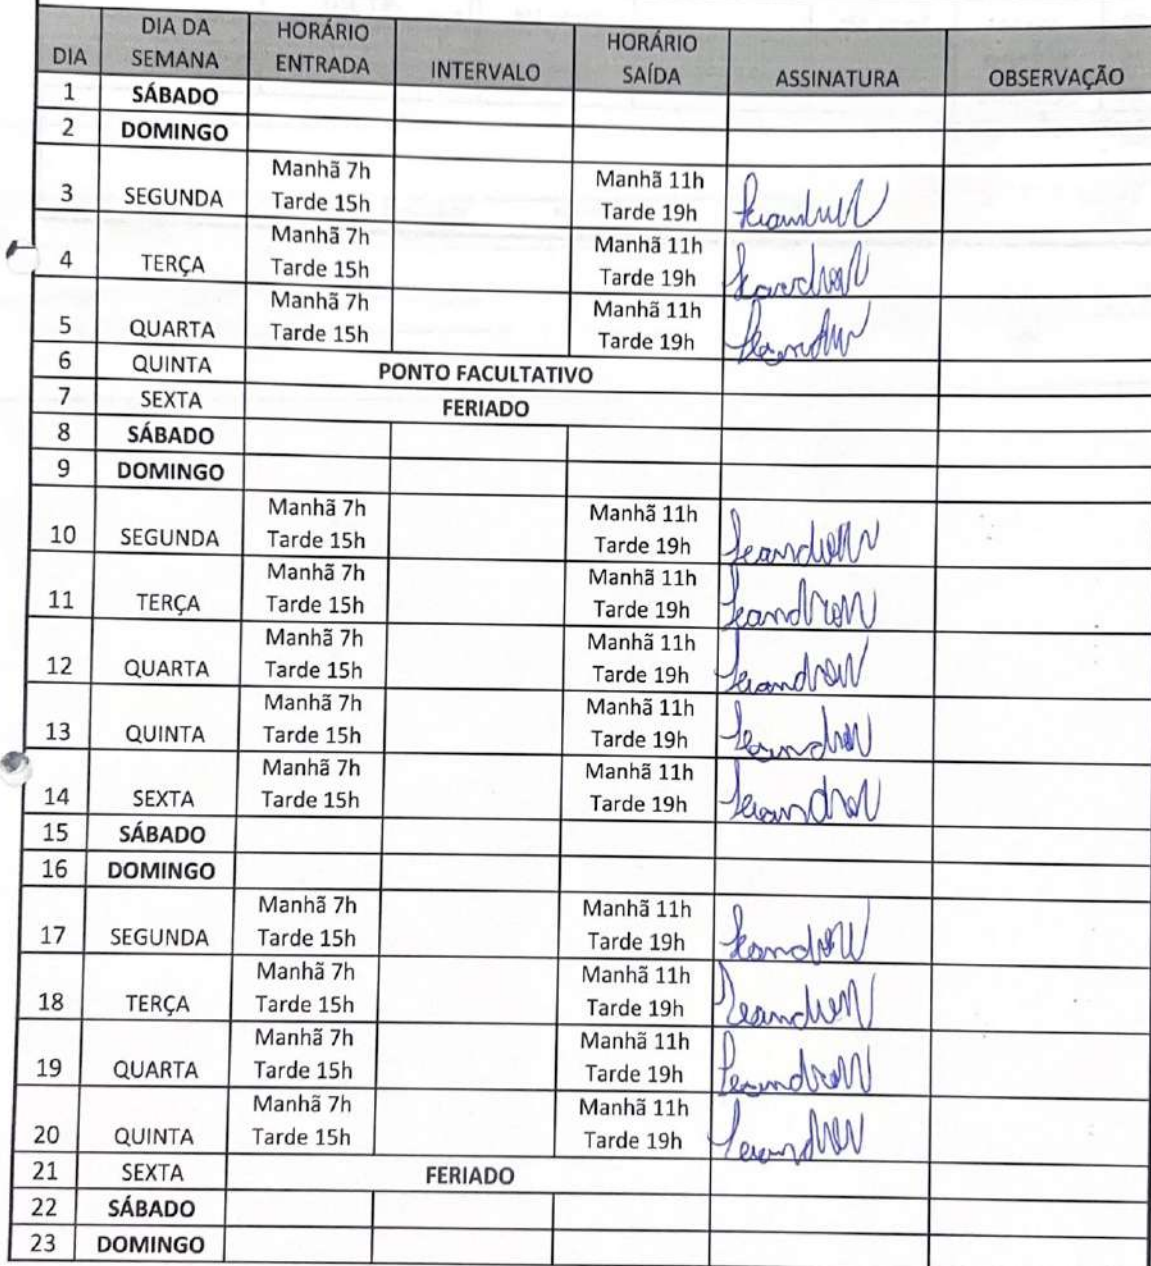 DIA DIA DA SEMANA HORÁRIO ENTRADA INTERVALO HORÁRIO SAÍDA ASSINATURA OBSERVAÇÃO
1 SÁBADO
2 DOMINGO
3 SEGUNDA Manhã 7h Manhã 11h
Tarde 15h Tarde 19h
4 TERÇA Manhã 7h Manhã 11h
Tarde 15h Tarde 19h
5 QUARTA Manhã 7h Manhã 11h
Tarde 15h Tarde 19h
6 QUINTA PONTO FACULTATIVO
7 SEXTA FERIADO
8 SÁBADO
9 DOMINGO
10 SEGUNDA Manhã 7h Manhã 11h
Tarde 15h Tarde 19h
11 TERÇA Manhã 7h Manhã 11h
Tarde 15h Tarde 19h
12 QUARTA Manhã 7h Manhã 11h
Tarde 15h Tarde 19h
13 QUINTA Manhã 7h Manhã 11h
Tarde 15h Tarde 19h
14 SEXTA Manhã 7h Manhã 11h
Tarde 15h Tarde 19h
15 SÁBADO
16 DOMINGO
17 SEGUNDA Manhã 7h Manhã 11h
Tarde 15h Tarde 19h
18 TERÇA Manhã 7h Manhã 11h
Tarde 15h Tarde 19h
19 QUARTA Manhã 7h Manhã 11h
Tarde 15h Tarde 19h
20 QUINTA Manhã 7h Manhã 11h
Tarde 15h Tarde 19h
21 SEXTA FERIADO
22 SÁBADO
23 DOMINGO